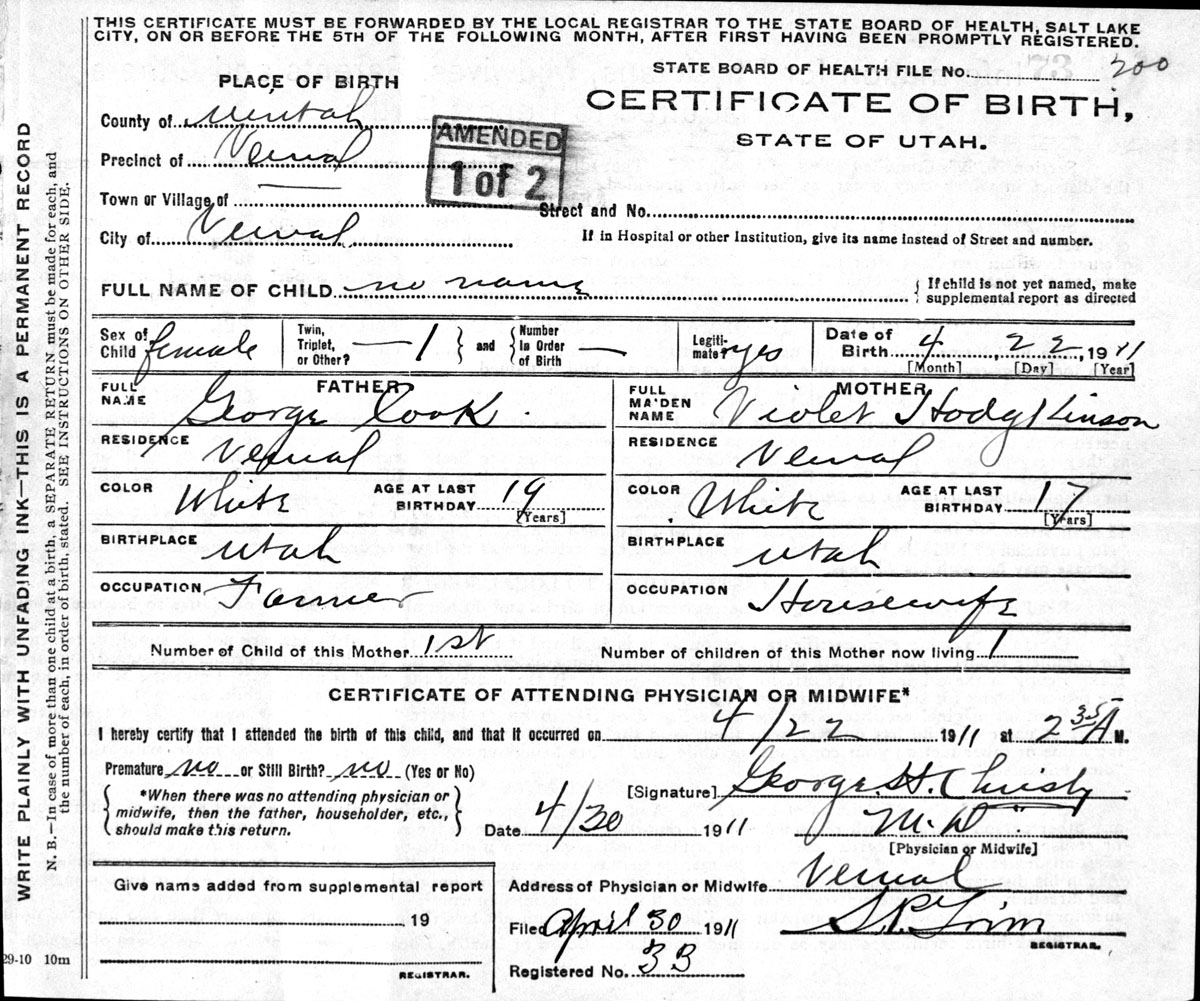 THIS CERTIFICATE MUST BE FORWARDED BY THE LOCAL REGISTRAR TO THE STATE BOARD OF HEALTH, SALT LAKE
CITY, ON OR BEFORE THE 5TH OF THE FOLLOWING MONTH, AFTER FIRST HAVING BEEN PROMPTLY REGISTERED.
WRITE PLAINLY WITH UNFADING INK—THIS IS A PERMANENT RECORD
N. B.—In case of more than one child at a birth, a SEPARATE RETURN must be made for each, and
the number of each, in order of birth, stated. SEE INSTRUCTIONS ON OTHER SIDE.
STATE BOARD OF HEALTH FILE No. 200
PLACE OF BIRTH
CERTIFICATE OF BIRTH,
STATE OF UTAH.
County of Uintah
AMENDED
1 of 2
Precinct of Vernal
Town or Village of —
Street and No.
City of Vernal
If in Hospital or other Institution, give its name instead of Street and number.
FULL NAME OF CHILD no name
{ If child is not yet named, make
supplemental report as directed
Sex of Child female
Twin, Triplet, or Other? — 1 } and { Number in Order of Birth —
Legiti-mate? yes
Date of Birth 4 22, 1911
[Month] [Day] [Year]
FATHER
FULL NAME George Cook.
MOTHER
FULL MAIDEN NAME Violet Hodgkinson
RESIDENCE Vernal
RESIDENCE Vernal
COLOR White AGE AT LAST BIRTHDAY 19 [Years]
COLOR White AGE AT LAST BIRTHDAY 17 [Years]
BIRTHPLACE Utah
BIRTHPLACE Utah
OCCUPATION Farmer
OCCUPATION Housewife
Number of Child of this Mother 1st
Number of children of this Mother now living 1
CERTIFICATE OF ATTENDING PHYSICIAN OR MIDWIFE*
I hereby certify that I attended the birth of this child, and that it occurred on 4/22 1911 at 2 35 A M.
Premature no or Still Birth? no (Yes or No)
{ *When there was no attending physician or
midwife, then the father, householder, etc.,
should make this return. }
[Signature] George H. Christy
Date 4/30 1911 M.D.
[Physician or Midwife]
Give name added from supplemental report
19
REGISTRAR.
Address of Physician or Midwife Vernal
Filed April 30 1911
REGISTRAR.
Registered No. 33
29-10 10m